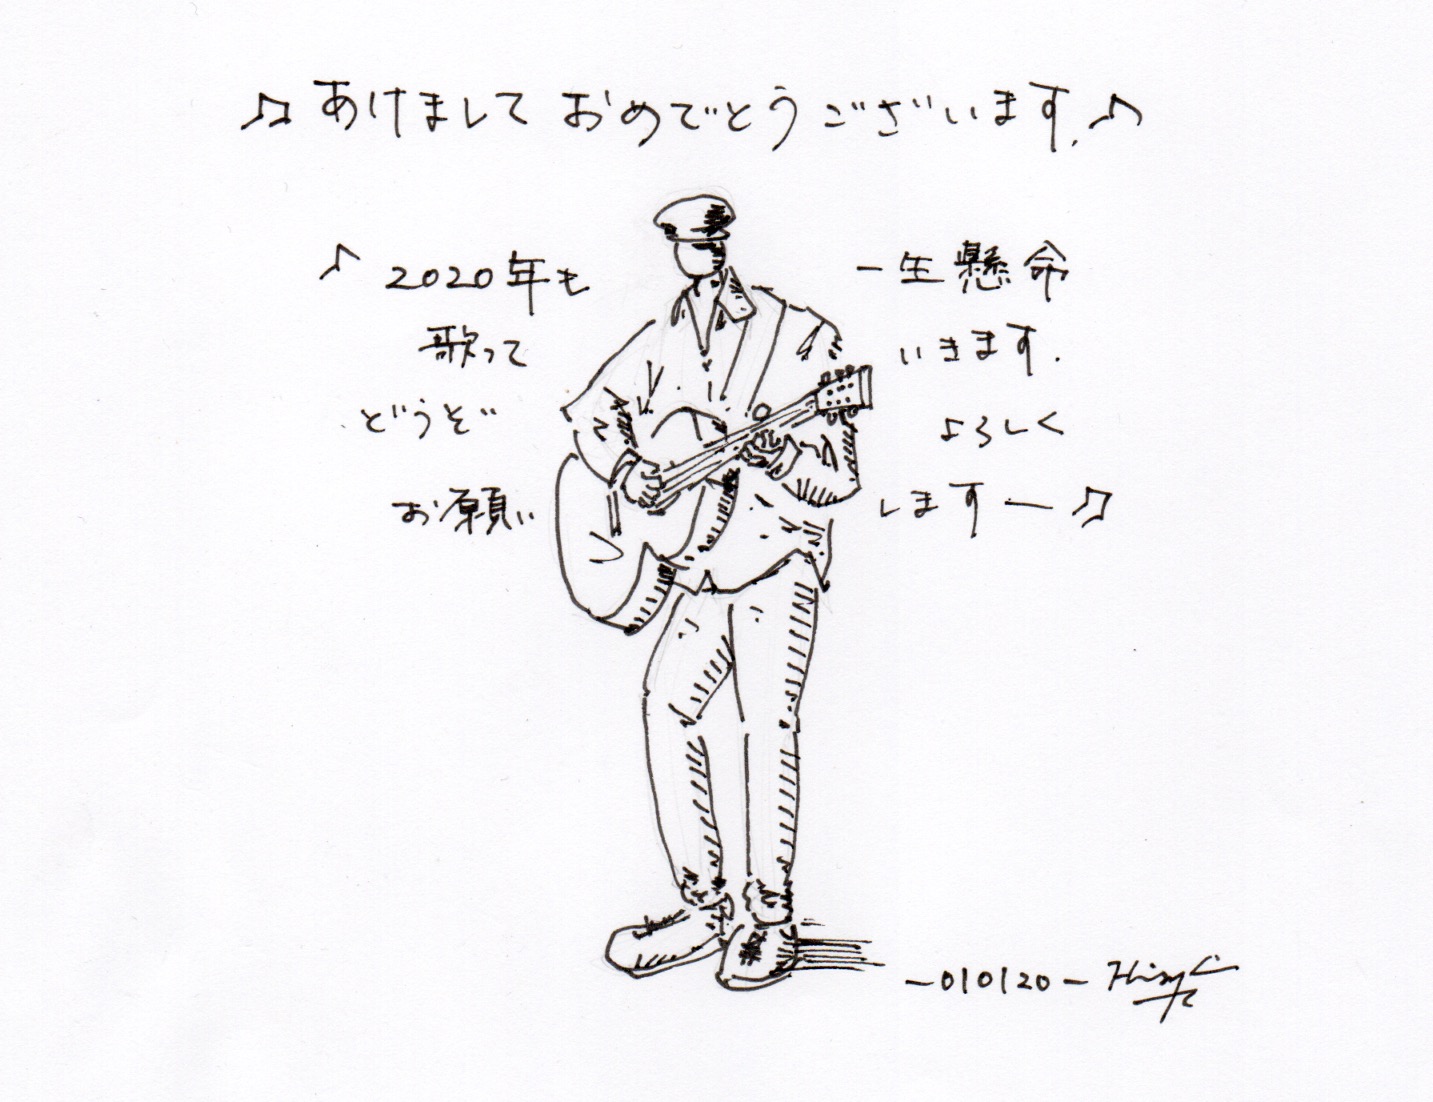 ♫ あけまして おめでとう ございます。♪
♪ 2020年も 一生懸命
歌って いきます。
どうぞ よろしく
お願い しますー ♫
-010120-